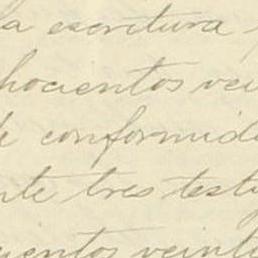 a escritura
hocientos vei
de conformid
nte tres test
cientos veint